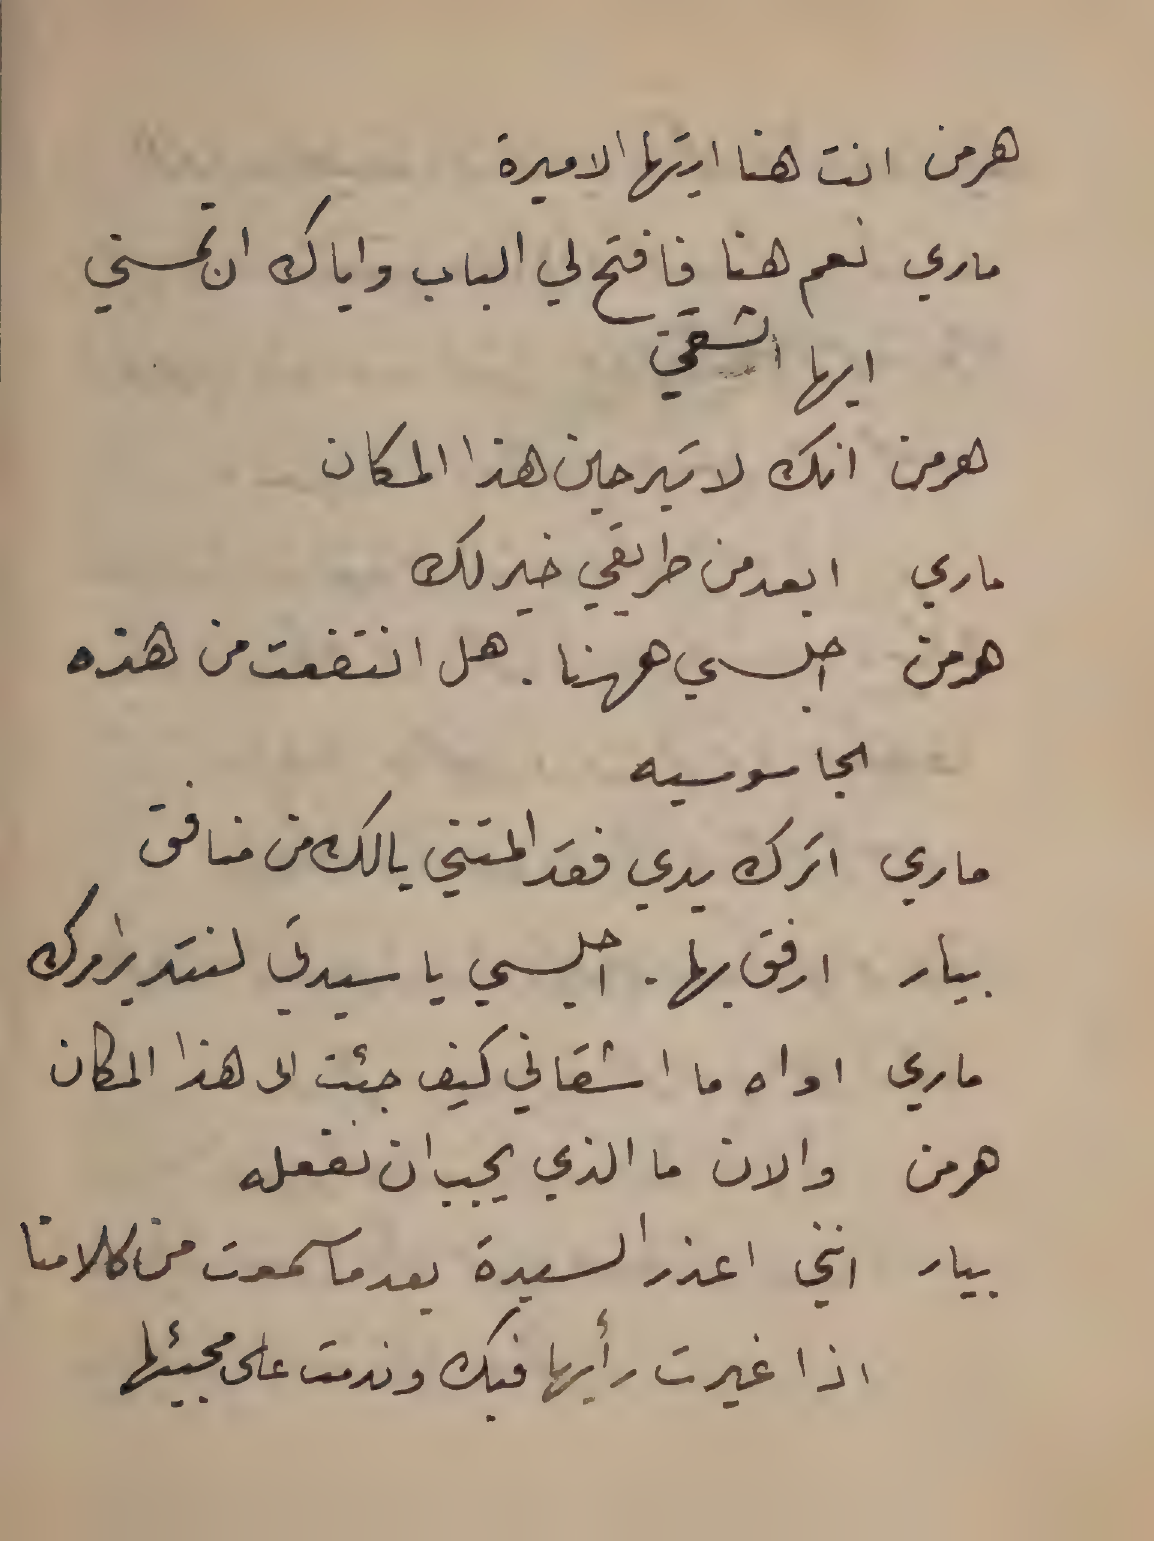 هرمن انت هنا ايتها الاميرة
ماري نعم هنا فافتح لي الباب واياك ان تمسني
ايها الشقي
هرمن انك لا تبرحين هذا المكان
ماري ابعد من طريقي خير لك
هرمن اجلسي ههنا . هل انتفعت من هذه
الجاسوسيه
ماري اترك يدي فقد المتني يالك من منافق
بيار ارفق بها . اجلسي يا سيدتي لنتدبر امرك
ماري اواه ما اشقاني كيف جئت الى هذا المكان
هرمن والان ما الذي يجب ان نفعله
بيار انني اعذر السيدة بعد ما سمعت من كلامنا
اذا غيرت رأيها فيك وندمت على مجيئها